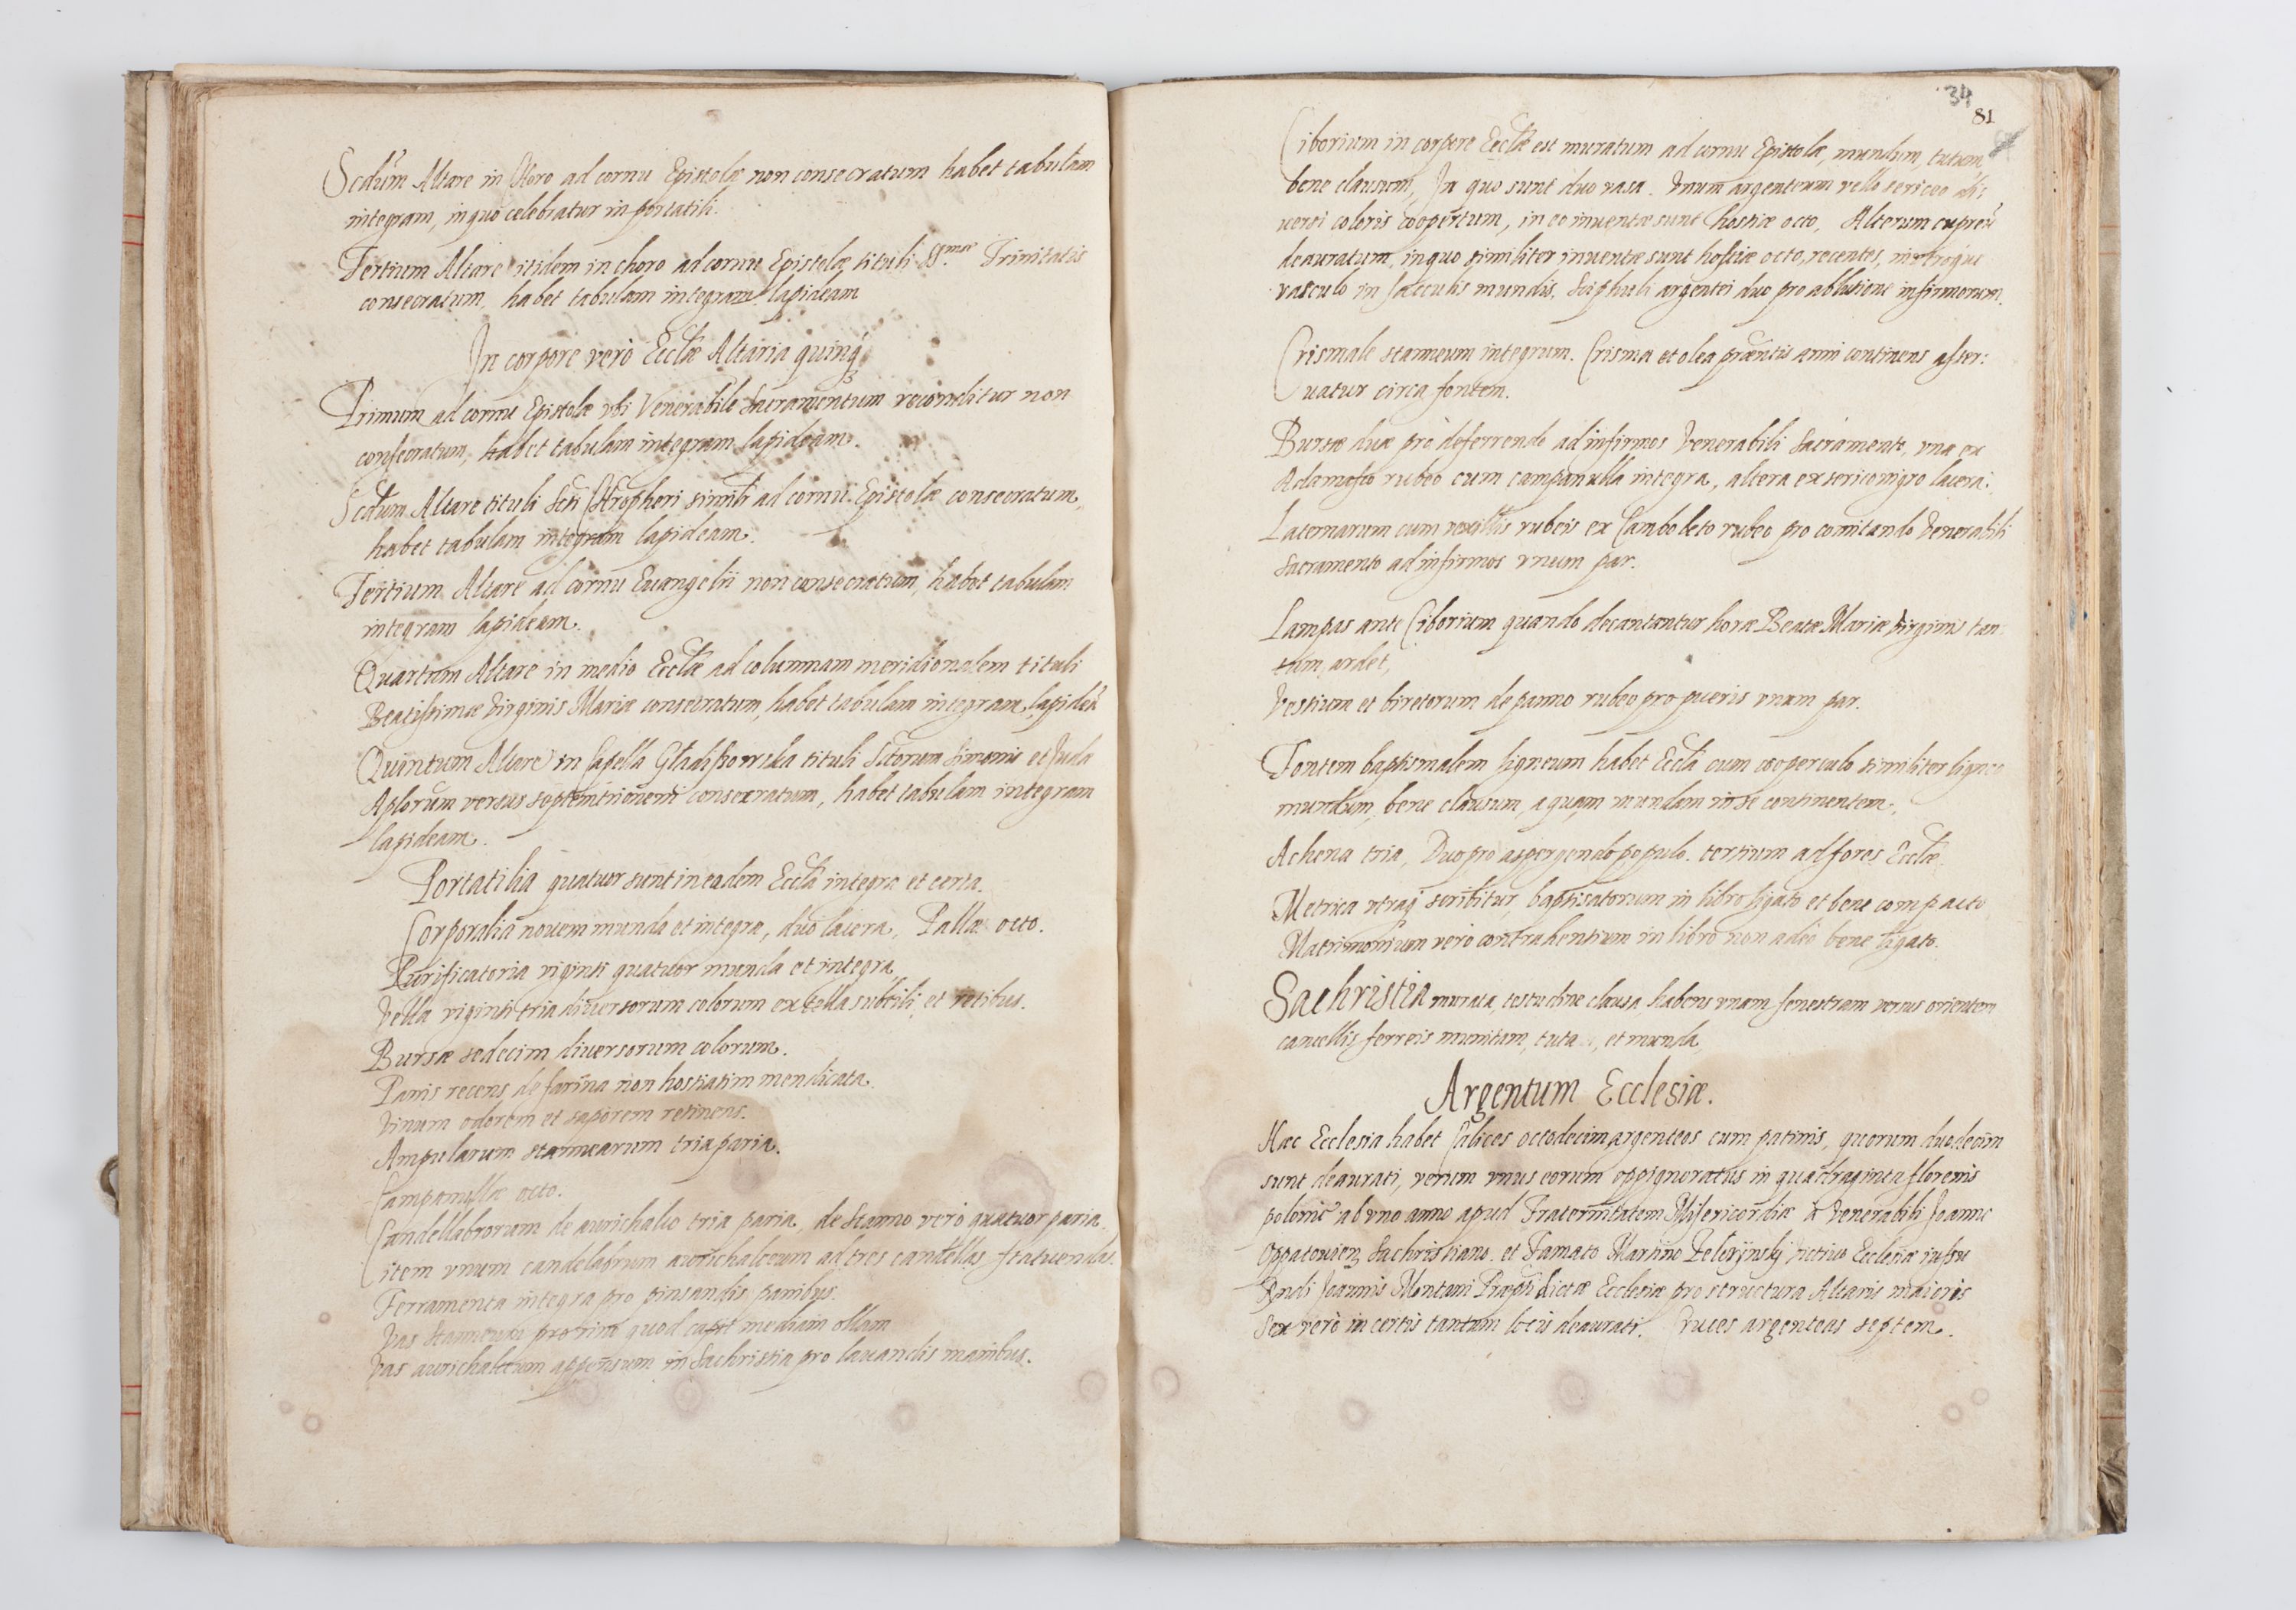 Scdum Altare in Choro ad cornu Epistolæ non consecratum habet tabulam
integram, in quo celebratur in portatili.
Tertium Altare itidem in choro ad cornu Epistolæ tituli SSmæ Trinitatis
consecratum, habet tabulam integram lapideam
In corpore verò Ecclæ Altaria quinq
Primum ad cornu Epistolæ vbi Venerabile Sacramentum reconditur non
consecratum, habet tabulam integram lapideam.
Scdum Altare tituli Scti Chrophori simili ad cornu Epistolæ consecratum,
habet tabulam integram lapideam.
Tertium Altare ad cornu Euangelii non consecratum, habet tabulam
integram lapideam.
Quartum Altare in medio Ecclæ ad columnam meridionalem tituli
Beatissimæ Virginis Mariæ consecratum, habet tabulam integram lapideā
Quintum Altare in Capella Gladissowska tituli Sctorum Simonis et Juda
Aplorum versus septemtrionem consecratum, habet tabulam integram
lapideam.
Portatilia quatuor sunt in eadem Eccla integra et certa.
Corporalia nouem munda et integra, duo lacera, Pallæ octo.
Purificatoria viginti quatuor munda et integra,
Vella viginti tria diuersorum colorum ex tella subtili et retibus.
Bursæ sedecim diuersorum colorum.
Panis recens de farina non hostiatim mendicata.
Vinum odorem et saporem retinens.
Ampularum stannearum tria paria.
Campanullæ octo.
Candellabrorum de aurichalco tria paria, de Stanno verò quatuor paria,
item vnum candelabrum aurichalceum ad tres candellas statuendas.
Ferramenta integra pro pinsandis panibus.
Vas Stanneum pro vino quod capit mediam ollam
Vas aurichalceum appensum in Sachristia pro lauandis manibus.
34
81
Ciborium in corpore Ecclæ est muratum ad cornu Epistolæ, mundum, tutum,
bene clausum, In quo sunt duo vasa. Vnum argenteum vello sericeo di:
uersi coloris coopertum, in eo inuentæ sunt hostiæ octo, Alterum cupreū
deauratum, in quo similiter inuentæ sunt hostiæ octo, recentes, in vtroque
vasculo in sacculis mundis. Sciphuli argentei duo pro ablutione infirmorum.
Crismale stanneum integrum. Crisma et olea præntis anni continens asser:
uatur circa fontem.
Bursæ duæ pro deferrendo ad infirmos Venerabili Sacramento, vna ex
Adamasco rubeo cum campanulla integra, altera ex serico nigro lacera.
Laternarum cum vexillis rubeis ex Camboleto rubeo pro comitando Venerabili
Sacramento ad infirmos vnum par.
Lampas ante Ciborium quando decantantur horæ Beatæ Mariæ Virginis tan:
tum ardet,
Vestium et biretorum de panno rubeo pro pueris vnum par.
Fontem baptismalem ligneum habet Eccla cum cooperculo similiter ligneo
mundum, bene clausum, aquam mundam in se continentem.
Achena tria, Duo pro aspergendo populo, tertium ad fores Ecclæ.
Metrica vtraq scribitur, baptisatorum in libro ligato et bene compacto
Matrimonium verò contrahentium in libro non adeò bene ligato.
Sachristia murata, testudine clausa habens vnam fenestram versus orientem
cancellis ferreis munitam, tuta, et munda,
Argentum Ecclesiæ.
Hæc Ecclesia habet Calices octodecim argenteos cum patinis, quorum duodecim
sunt deaurati, verum vnus eorum oppignoratus in quadraginta florenis
polonic ab vno anno apud Fraternitatem Misericordiæ à Venerabili Joanne
Oppatouien Sachristiano et Famato Martino Pelczÿnskj vitrico Ecclesiæ iussu
Rndi Joannis Montani Præpti dictæ Ecclesiæ pro structura Altaris maioris
Sex verò in certis tantum locis deaurati. Cruces argenteas septem.